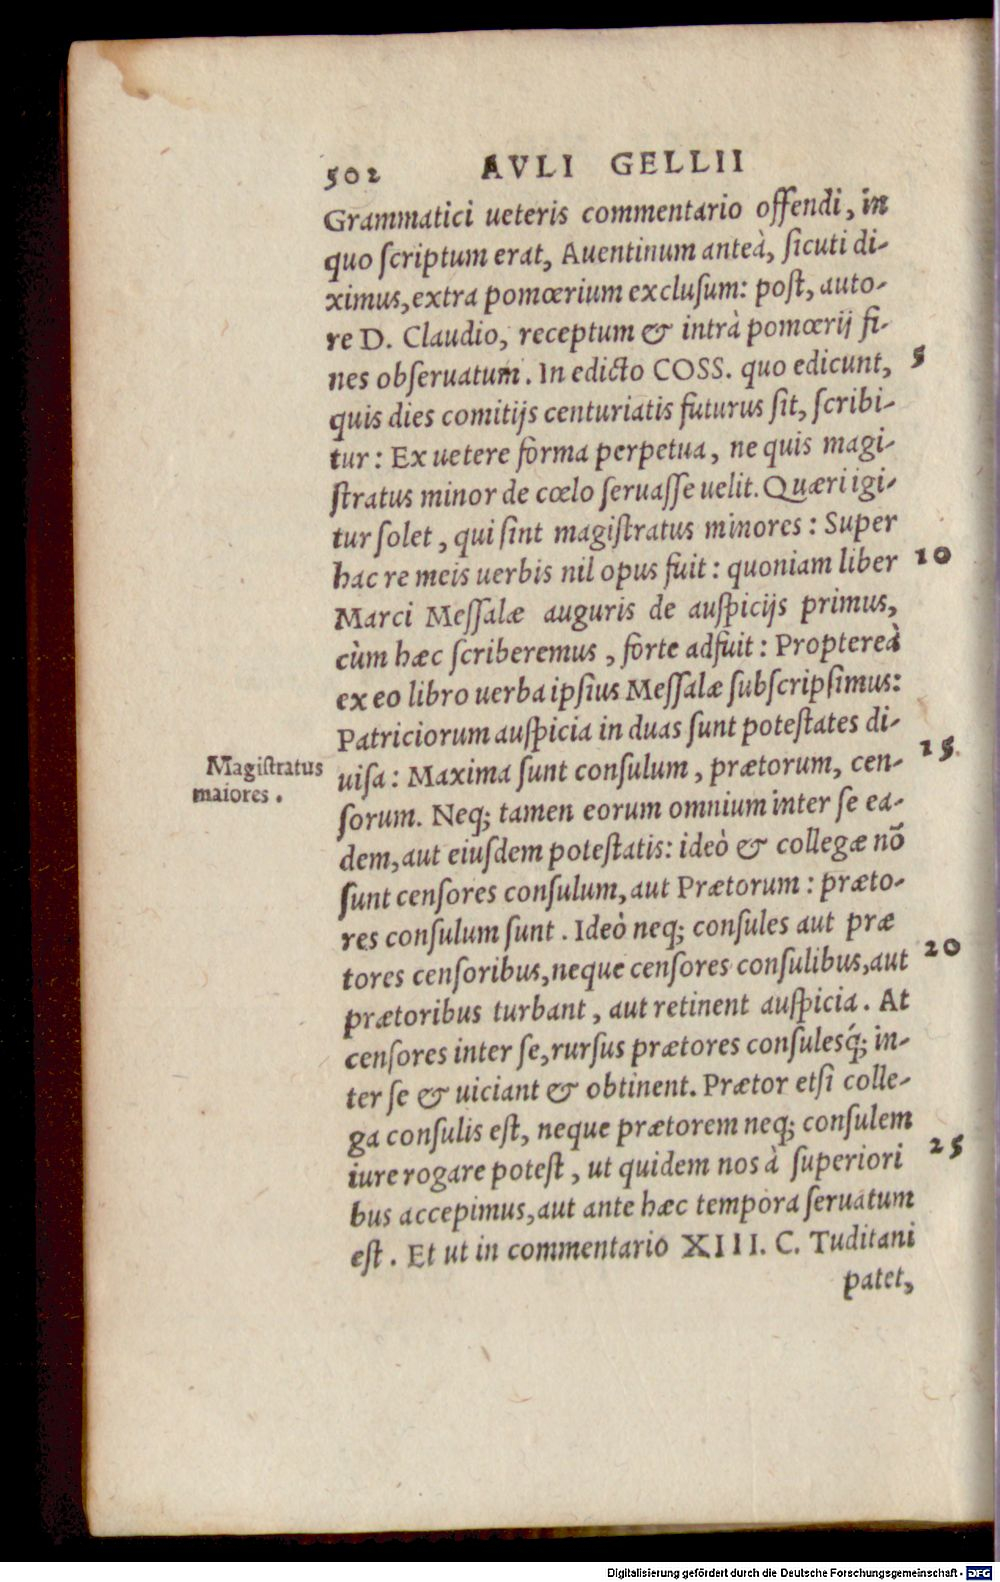 502 AVLI GELLII
Grammatici ueteris commentario offendi, in
quo ſcriptum erat, Aventinum anteà, ſicuti di-
ximus, extra pomœrium excluſum: poſt, auto-
re D. Claudio, receptum & intrà pomœrij fi-
nes obſeruatum. In edicto COSS. quo edicunt, 5
quis dies comitijs centuriatis futurus ſit, ſcribi-
tur: Ex uetere forma perpetua, ne quis magi-
ſtratus minor de cœlo ſeruaſſe uelit. Quæri igi-
tur ſolet, qui ſint magiſtratus minores: Super
hac re meis uerbis nil opus fuit: quoniam liber 10
Marci Meſſalæ auguris de auſpicijs primus,
cùm hæc ſcriberemus, forte adfuit: Proptereà
ex eo libro uerba ipſius Meſſalæ ſubſcripſimus:
Patriciorum auſpicia in duas ſunt poteſtates di-
Magiſtratus
maiores.
uiſa: Maxima ſunt conſulum, prætorum, cen- 15
ſorum. Neq; tamen eorum omnium inter ſe ea-
dem, aut eiuſdem poteſtatis: ideò & collegæ nõ
ſunt cenſores conſulum, aut Prætorum: præto-
res conſulum ſunt. Ideò neq; conſules aut præ
tores cenſoribus, neque cenſores conſulibus, aut 20
prætoribus turbant, aut retinent auſpicia. At
cenſores inter ſe, rurſus prætores conſulesq́; in-
ter ſe & uiciant & obtinent. Prætor etſi colle-
ga conſulis eſt, neque prætorem neq; conſulem
iure rogare poteſt, ut quidem nos à ſuperiori 25
bus accepimus, aut ante hæc tempora ſeruatum
eſt. Et ut in commentario XIII. C. Tuditani
patet,
Digitalisierung gefördert durch die Deutsche Forschungsgemeinschaft - DFG